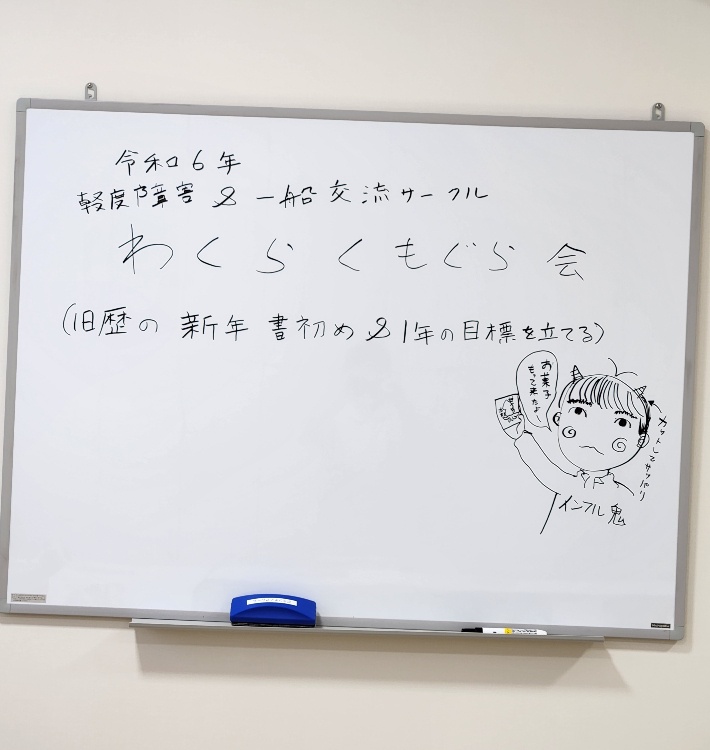 令和6年
軽度障害 & 一船交流サークル
わくらくもぐら会
(旧歴の 新年 書初め & 1年の目標を立てる)
お菓子
もって来たよ〜
カットしてサッパリ
インフル鬼